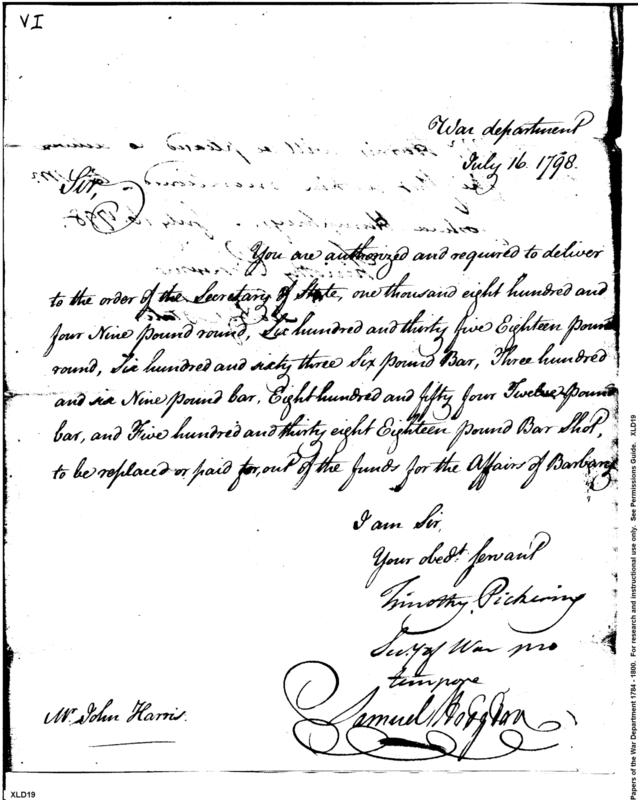 VI
War department
July 16. 1798.
Sir,
You are authorized and required to deliver
to the order of the Secretary of State, one thousand eight hundred and
four Nine pound round, Six hundred and thirty five Eighteen pound
round, Six hundred and sixty three Six pound Bar, Three hundred
and six Nine pound bar, Eight hundred and fifty four Twelve pound
bar, and Five hundred and thirty eight Eighteen pound Bar Shot,
to be replaced or paid for, out of the funds for the Affairs of Barbary
I am Sir,
Your obedt. servant
Timothy Pickering
Secy of War pro
tempore
Samuel Hodgdon
Mr. John Harris.
XLD19
Papers of the War Department 1784 - 1800. For research and instructional use only. See Permissions Guide. XLD19